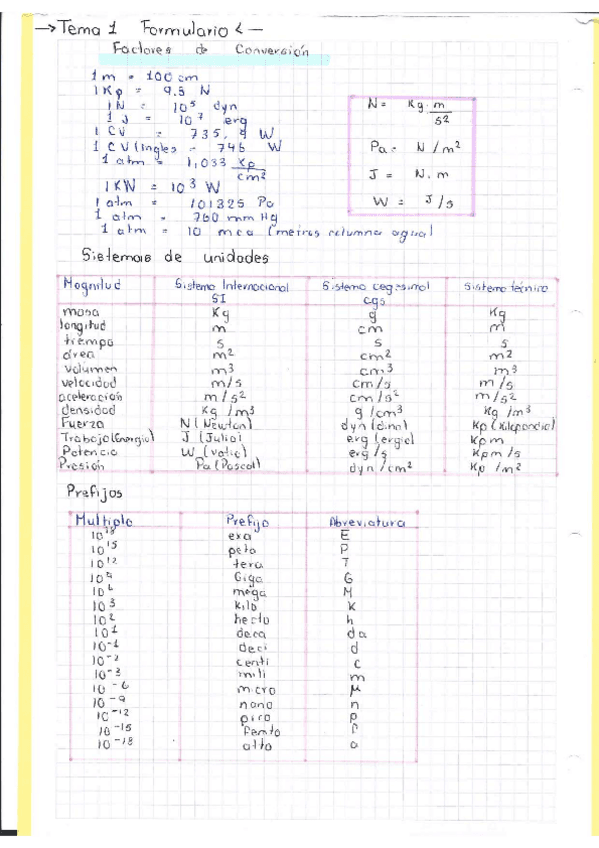 → Tema 1 Formulario ← —
Factores de Conversión
1 m = 100 cm
1 Kp = 9.8 N
1 N = 10⁵ dyn
1 J = 10⁷ erg
1 CV = 735,9 W
1 CV (ingles = 746 W
1 atm = 1,033 Kp/cm²
1 KW = 10³ W
1 atm = 101325 Pa
1 atm = 760 mm Hg
1 atm = 10 mca (metros columna agua)
N = Kg·m/s²
Pa = N/m²
J = N.m
W = J/s
Sistemas de unidades
Magnitud Sistema Internacional SI Sistema cegesimal cgs Sistema técnico
masa Kg g Kg
longitud m cm m
tiempo s s s
área m² cm² m²
volumen m³ cm³ m³
velocidad m/s cm/s m/s
aceleración m/s² cm/s² m/s²
densidad Kg/m³ g/cm³ Kg/m³
Fuerza N (Newton) dyn (dina) Kp (Kilopondio)
Trabajo (Energía) J (Julio) erg (ergio) Kpm
Potencia W (vatio) erg/s Kpm/s
Presión Pa (Pascal) dyn/cm² Kp/m²
Prefijos
Multiplo Prefijo Abreviatura
10¹⁸ exa E
10¹⁵ peta P
10¹² tera T
10⁹ Giga G
10⁶ mega M
10³ Kilo K
10² hecto h
10¹ deca da
10⁻¹ deci d
10⁻² centi c
10⁻³ mili m
10⁻⁶ micro µ
10⁻⁹ nano n
10⁻¹² pico p
10⁻¹⁵ Femto f
10⁻¹⁸ atto a